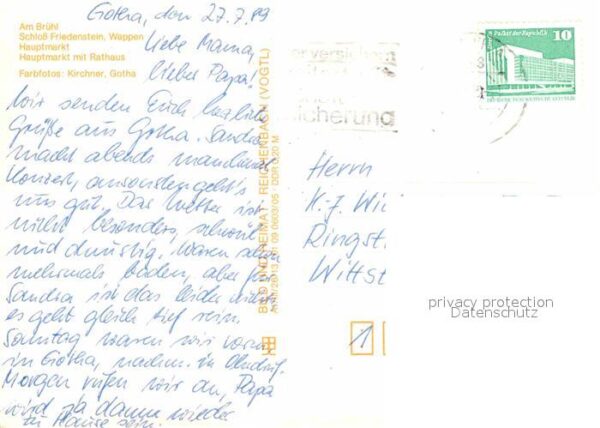 Gotha, den 27.7.89
Am Brühl
Schloß Friedenstein, Wappen
Hauptmarkt
Hauptmarkt mit Rathaus
Farbfotos: Kirchner, Gotha
Liebe Mama,
lieber Papa!
Wir senden Euch herzliche
Grüße aus Gotha. Sandra
macht abends manchmal
Konzert, ansonsten geht's
uns gut. Das Wetter ist
nicht besonders, schwül
und dunstig. Waren schon
mehrmals baden, aber für
Sandra ist das leider nichts
es geht gleich tief rein.
Sonntag waren wir vorm.
in Gotha, nachm. in Ohrdruf.
Morgen rufen wir an, Papa
wird ja dann wieder
zu Hause sein.
BILD UND HEIMAT REICHENBACH (VOGTL)
er versichern
icherung
Palast der Republik
10
Herrn
K.-J. Wi
Ringst
Wittst
1
privacy protection
Datenschutz